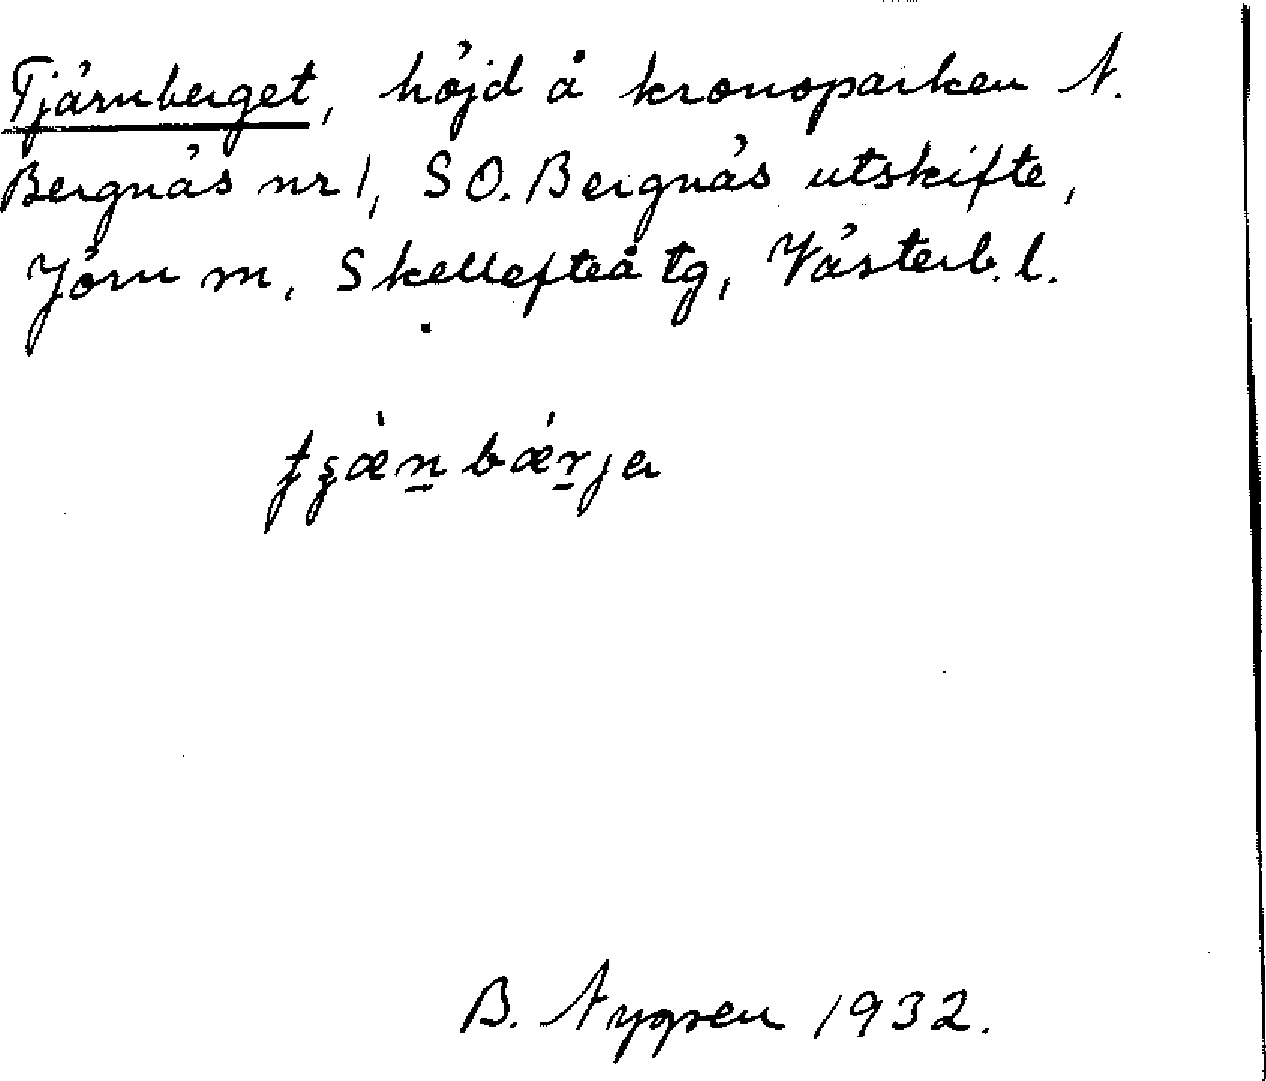 Tjärnberget, höjd å kronoparken N.
Bergnäs nr 1, SO. Bergnäs utskifte,
Jörn sn, Skellefteå tg, Västerb. l.
B. Nygren 1932.